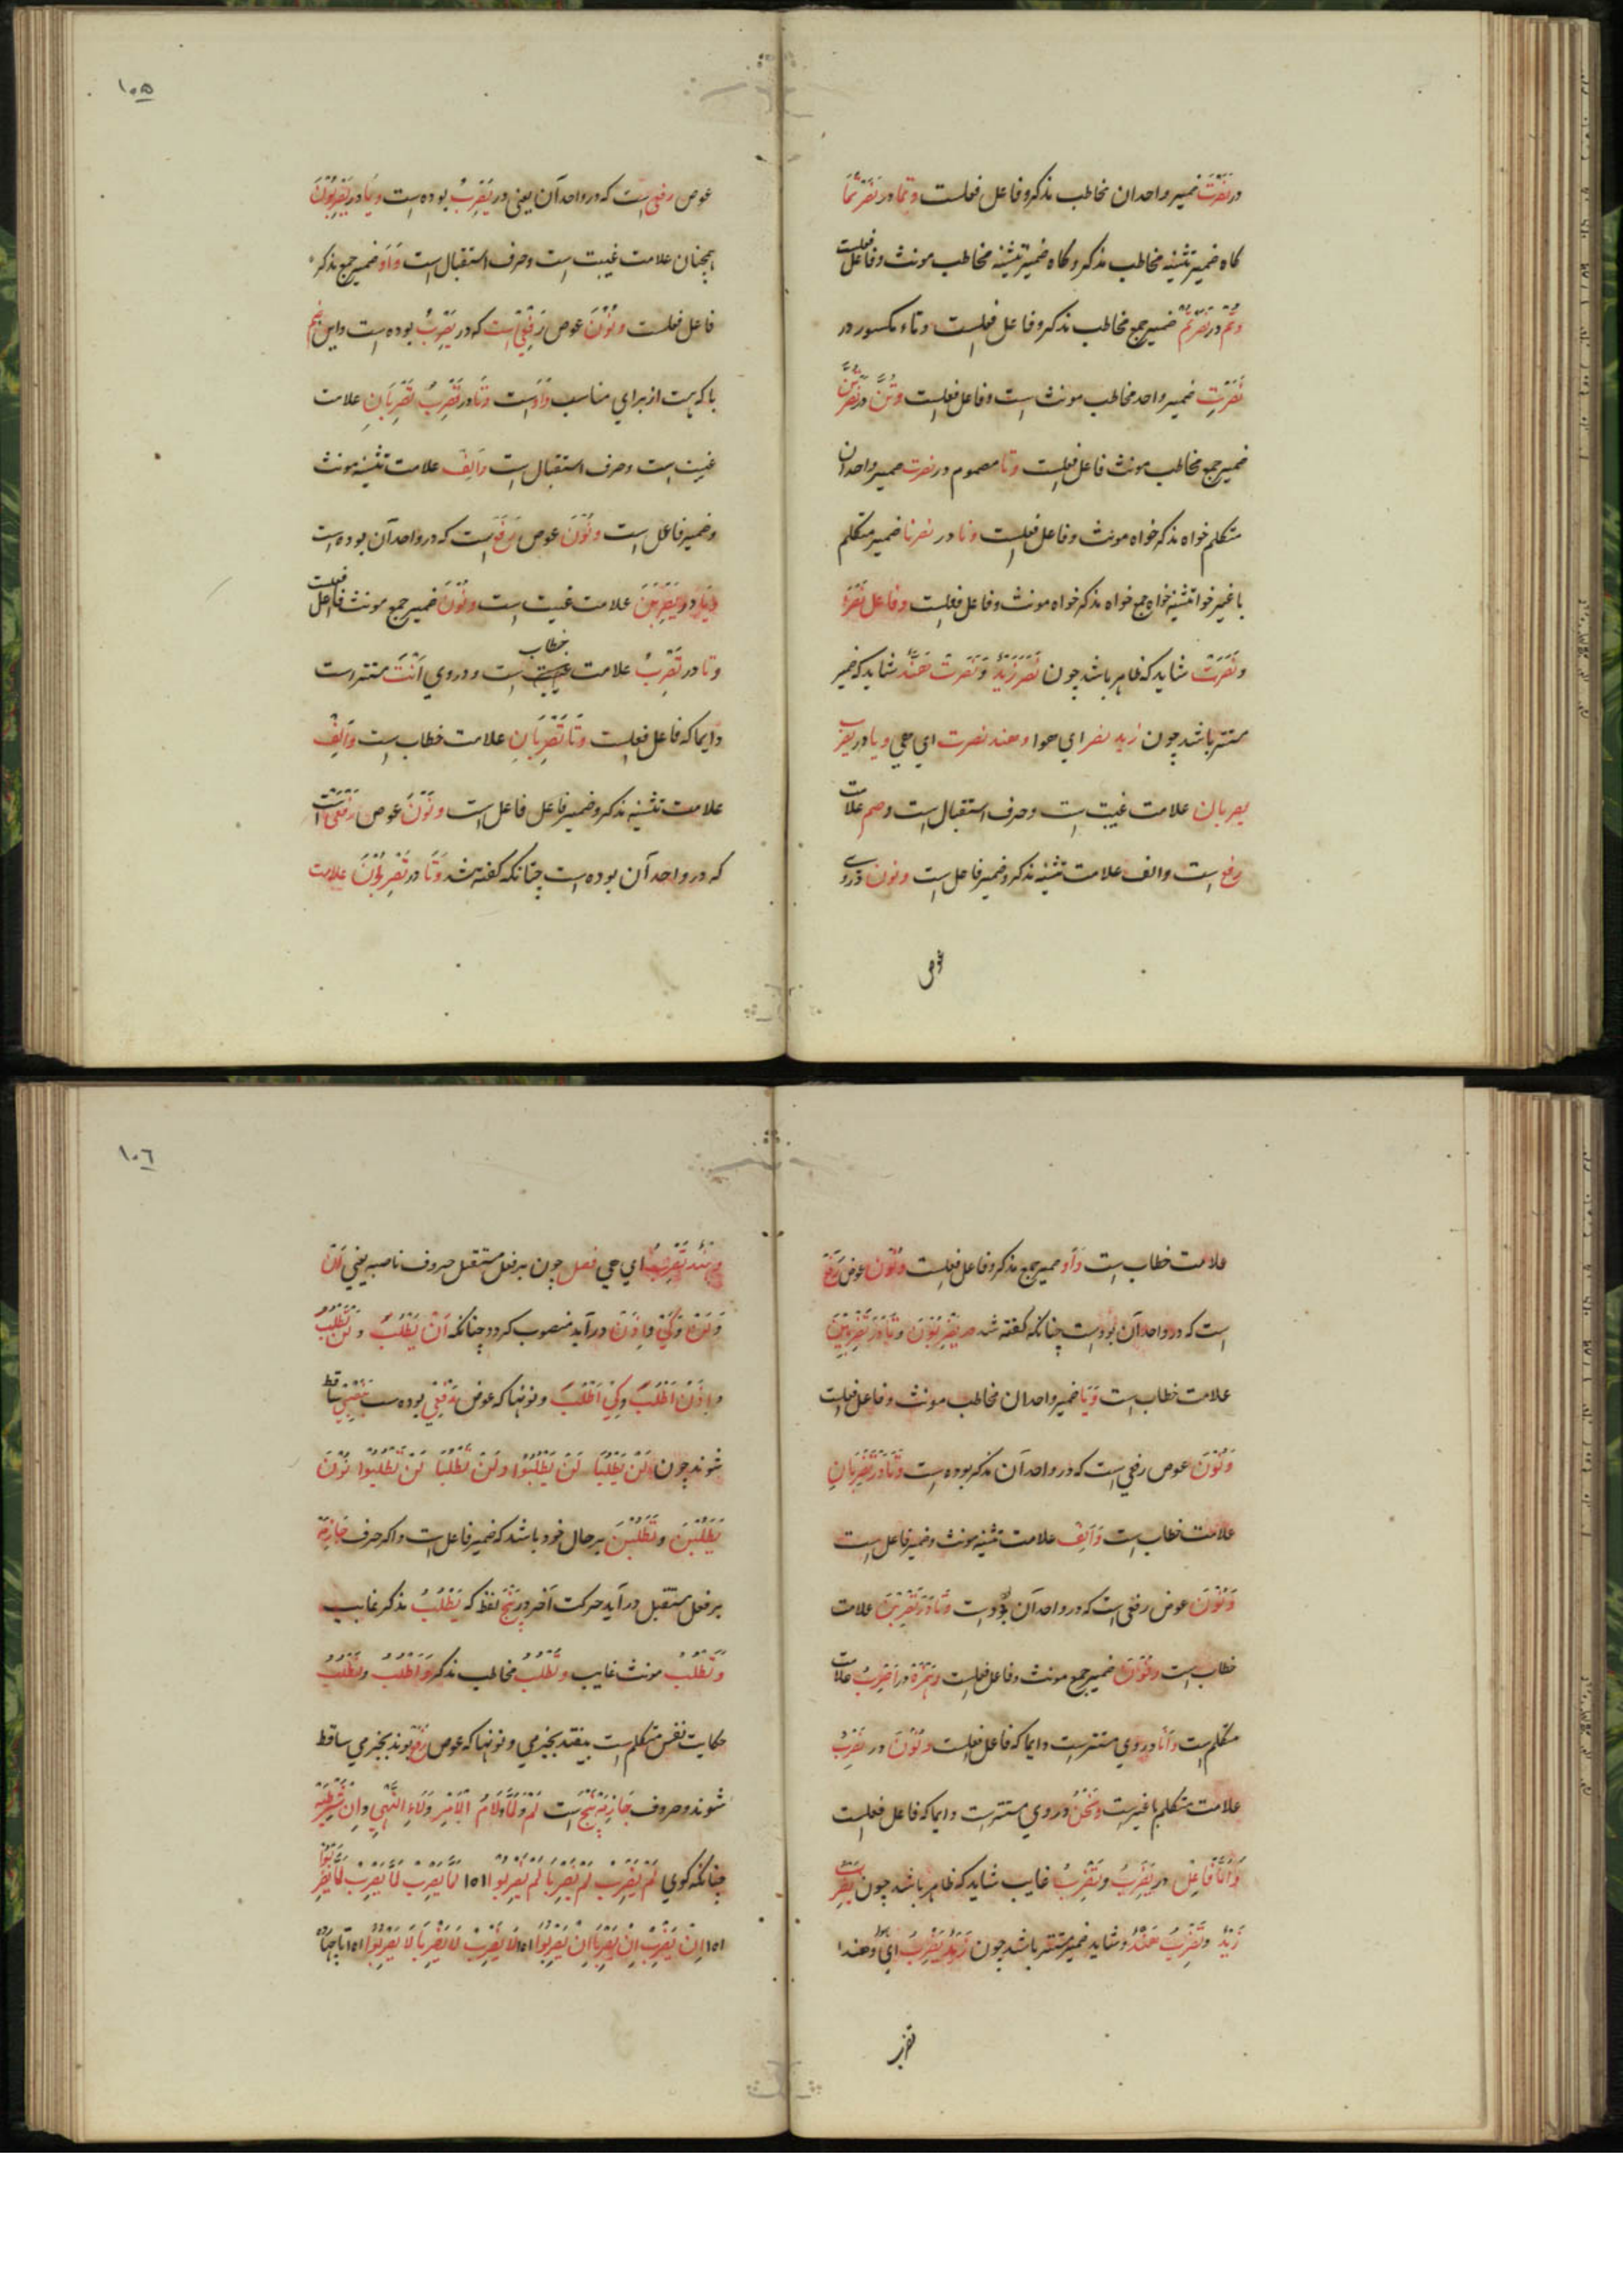 در نَصَرْتَ ضمیر واحدان مخاطب مذکر و فاعل فعلست و تما در نصرتما
کاه ضمیر تثنیه مخاطب مذکر و کاه ضمیر تثنیه مخاطب مونث و فاعل فعلست
و تم در نصرتم ضمیر جمع مخاطب مذکر و فاعل فعلست و تاء مکسور در
نصرتِ ضمیر واحد مخاطب مونث است و فاعل فعلست و تن در نصرتن
ضمیر جمع مخاطب مونث فاعل فعلست و تا مضموم در نصرت ضمیر واحدان
متکلم خواه مذکر خواه مونث و فاعل فعلست و نا در نصرنا ضمیر متکلم
با غیر خواه تثنیه خواه جمع خواه مذکر خواه مونث و فاعل فعلست و فاعل نصر
و نصرت شاید که ظاهر باشد چون نصر زید و نصرت هند شاید که ضمیر
مستتر باشد چون زید نصر ای هوا و هند نصرت ای هی و یا در یضرب
یضربان علامت غیبت است و حرف استقبال است و ضم علامت
رفع است و الف علامت تثنیه مذکر و ضمیر فاعل است و نون در وی
عوض
١٠٥
عوض رفعی است که در واحد آن یعنی در یضرب بوده است و یا در یضربون
همچنان علامت غیبت است و حرف استقبال است و واو ضمیر جمع مذکر
فاعل فعلست و نون عوض رفعی است که در یضرب بوده است و این ضم
با که هست از برای مناسب واوست و تا در تضرب تضربان علامت
غیبت است و حرف استقبال است و الف علامت تثنیه مونث
و ضمیر فاعل است و نون عوض رفع است که در واحد آن بوده است
و یا در یضربن علامت غیبت است و نون ضمیر جمع مونث فاعل فعلست
و تا در تضرب علامت خطاب است و در وی انت مستتر است
دایما که فاعل فعلست و تا تضربان علامت خطاب است و الف
علامت تثنیه مذکر و ضمیر فاعل فاعل است و نون عوض رفعی است
که در واحد آن بوده است چنانکه کفته شد و تا در تضربون علامت
علامت خطاب است و واو ضمیر جمع مذکر و فاعل فعلست و نون عوض رفع
است که در واحد آن بودست چنانکه کفته شد در یضربون و تا در تضربین
علامت خطاب است و یا ضمیر واحدان مخاطب مونث و فاعل فعلست
و نون عوض رفعی است که در واحد آن مذکر بوده است و تا در تضربان
علامت خطاب است و الف علامت تثنیه مونث و ضمیر فاعل است
و نون عوض رفعی است که در واحد آن بودست و تا در تضربن علامت
خطاب است و نون ضمیر جمع مونث و فاعل فعلست و همزه در اضرب علامت
متکلم است و انا در وی مستترست دایما که فاعل فعلست و نون در نضرب
علامت متکلم با غیرست و نحن در وی مستترست دایما که فاعل فعلست
و اما فاعل در یضرب و تضرب غایب شاید که ظاهر باشد چون یضرب
زید و تضرب هند و شاید ضمیر مستتر باشد چون زید یضرب ای هو و هند
تضرب
١٠٦
و هند تضرب ای هی فصل چون بر فعل مستقبل حروف ناصبه یعنی ان
و لن و کی و اذن در آید منصوب کردد چنانکه ان یطلب و لن تطلب
و اذن اطلب و کی اطلب و نونها که عوض رفعی بوده ست بنصبی ساقط
شوند چون لن یطلبا لن یطلبوا و لن تطلبا لن تطلبوا نون
یطلبن و تطلبن بر حال خود باشد که ضمیر فاعل است و اکر حرف جازمة
بر فعل مستقبل در آید حرکت آخر در پنج لفظ که یطلب مذکر غایب
و تطلب مونث غایب و تطلب مخاطب مذکر و اطلب و نطلب
حکایت نفس متکلم است بیفتد بجزمی و نونها که عوض رفع بوند بجزمی ساقط
شوند و حروف جازمه پنج است لم و لما و لام الامر و لاء النهی و ان شرطیة
چنانکه کوی لم یضرب لم یضربا لم یضربوا ١٥١ لما یضرب لما یضرب لما یضربوا
١٥١ ان یضرب ان یضربا ان یضربوا ١٥١ لا یضرب لا یضربا لا یضربوا ١٥١ تا جهارده